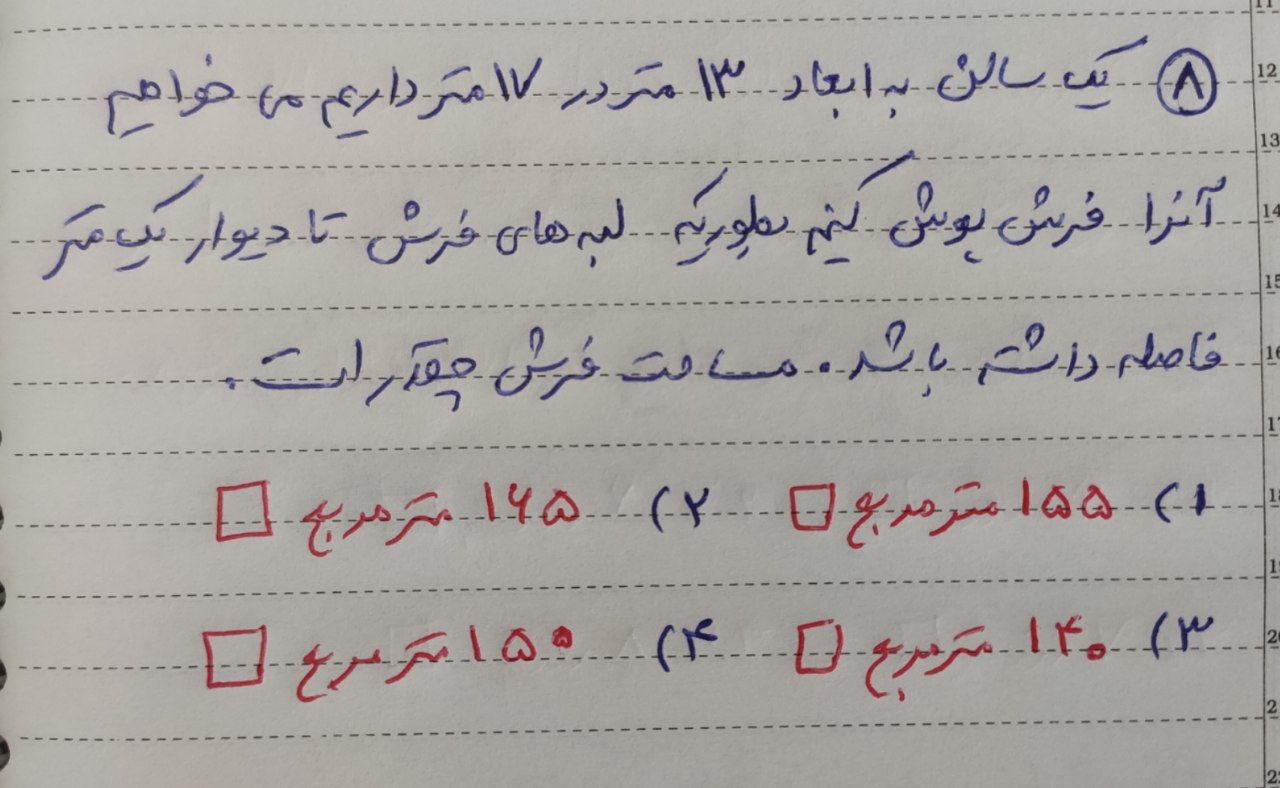 ۸ یک سالن به ابعاد ۱۳ متر در ۱۷ متر داریم می خواهیم
آنرا فرش پوش کنیم بطوریکه لبه های فرش تا دیوار یک متر
فاصله داشته باشد. مساحت فرش چقدر است.
۱) ۱۵۵ مترمربع ۲) ۱۶۵ مترمربع
۳) ۱۴۰ مترمربع ۴) ۱۵۰ مترمربع
11
12
13
14
15
16
17
18
19
20
21
22